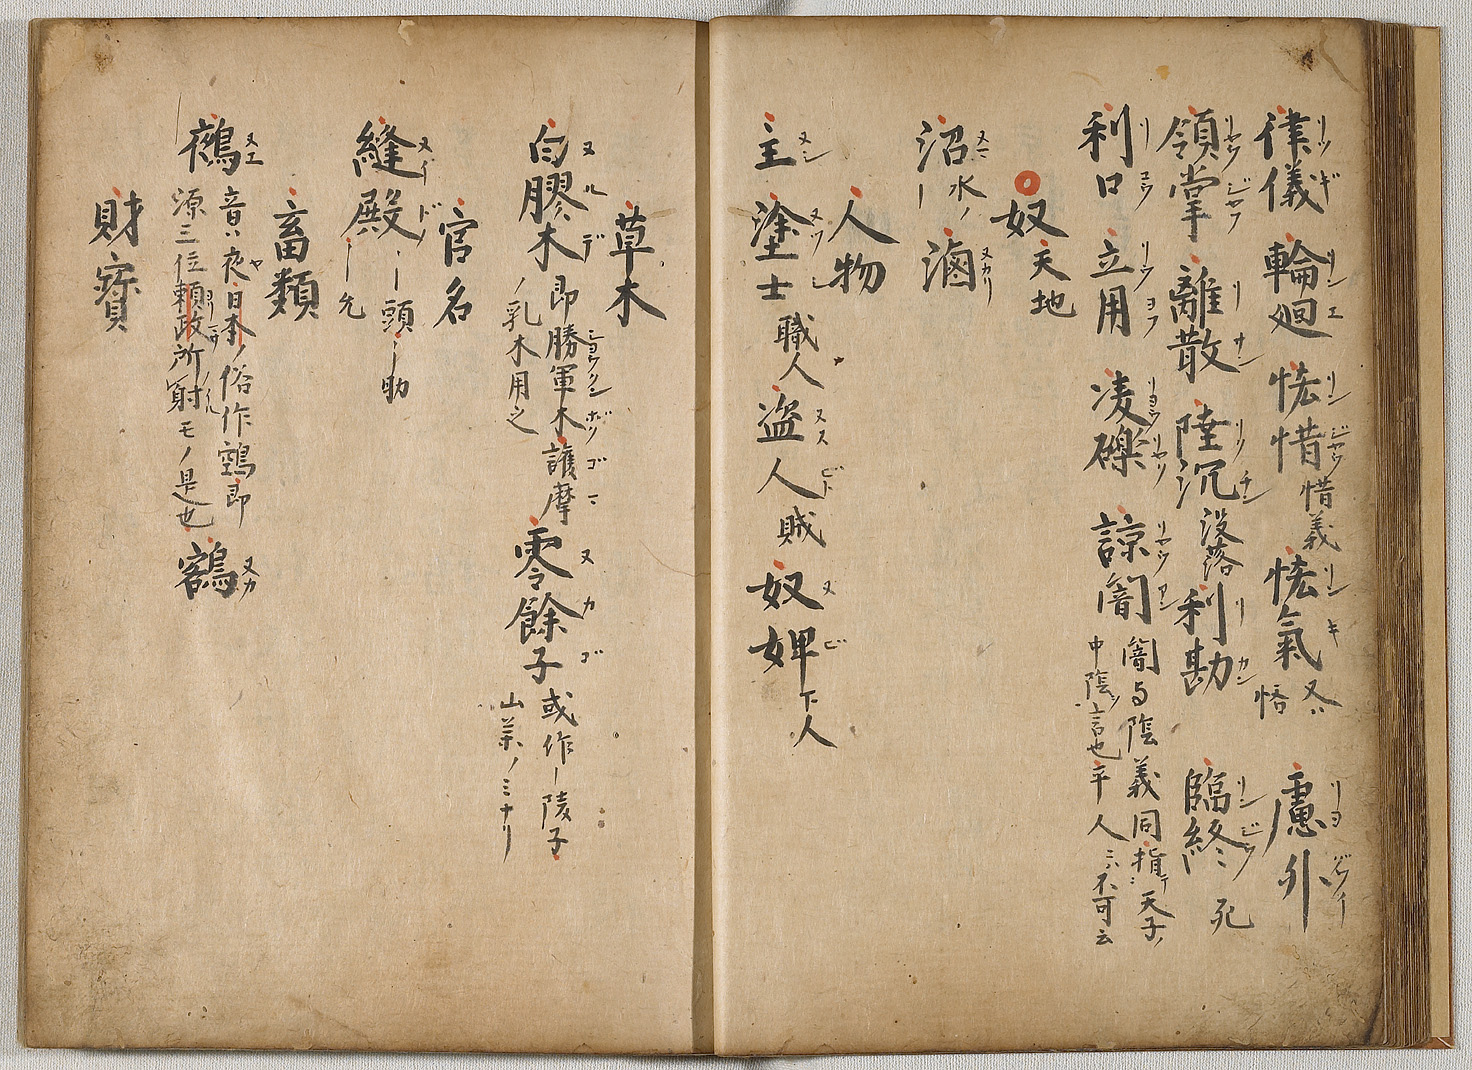 律儀 リツギ 輪廻 リンエ 悋惜 リンジヤク 惜義 悋氣 リンキ 又ハ悋 慮外 リヨグワイ
領掌 リヤウジヤウ 離散 リサン 陸沉 リクチン 没落 利勘 リカン 臨終 リンジウ 死
利口 リコウ 立用 リウヨフ 凌礫 リヨウリヤク 諒闇 リヤウアン 闇与陰義同指テ天子ノ
中陰ヲ言也平人ニハ不可云
奴 天地
沼 ヌマ 水ノ 滷 ヌカリ
人物
主 ヌシ 塗士 ヌワシ 職人 盗人 ヌスビト 賊 奴婢 ヌビ 下人
草木
白膠木 ヌルデ 即勝軍木 シヨウグンボク 護摩 ゴマ
ノ乳木用之 零餘子 ヌカゴ 或作ー陵子
山菜ノミナリ
官名
縫殿 ヌイドノ ー頭 ー助
ー允
畜類
鵺 ヌエ 音ハ夜 ヤ 日本ノ俗作鵼即
源三位頼政所射ルモノ是也 鵅 ヌカ
財寳